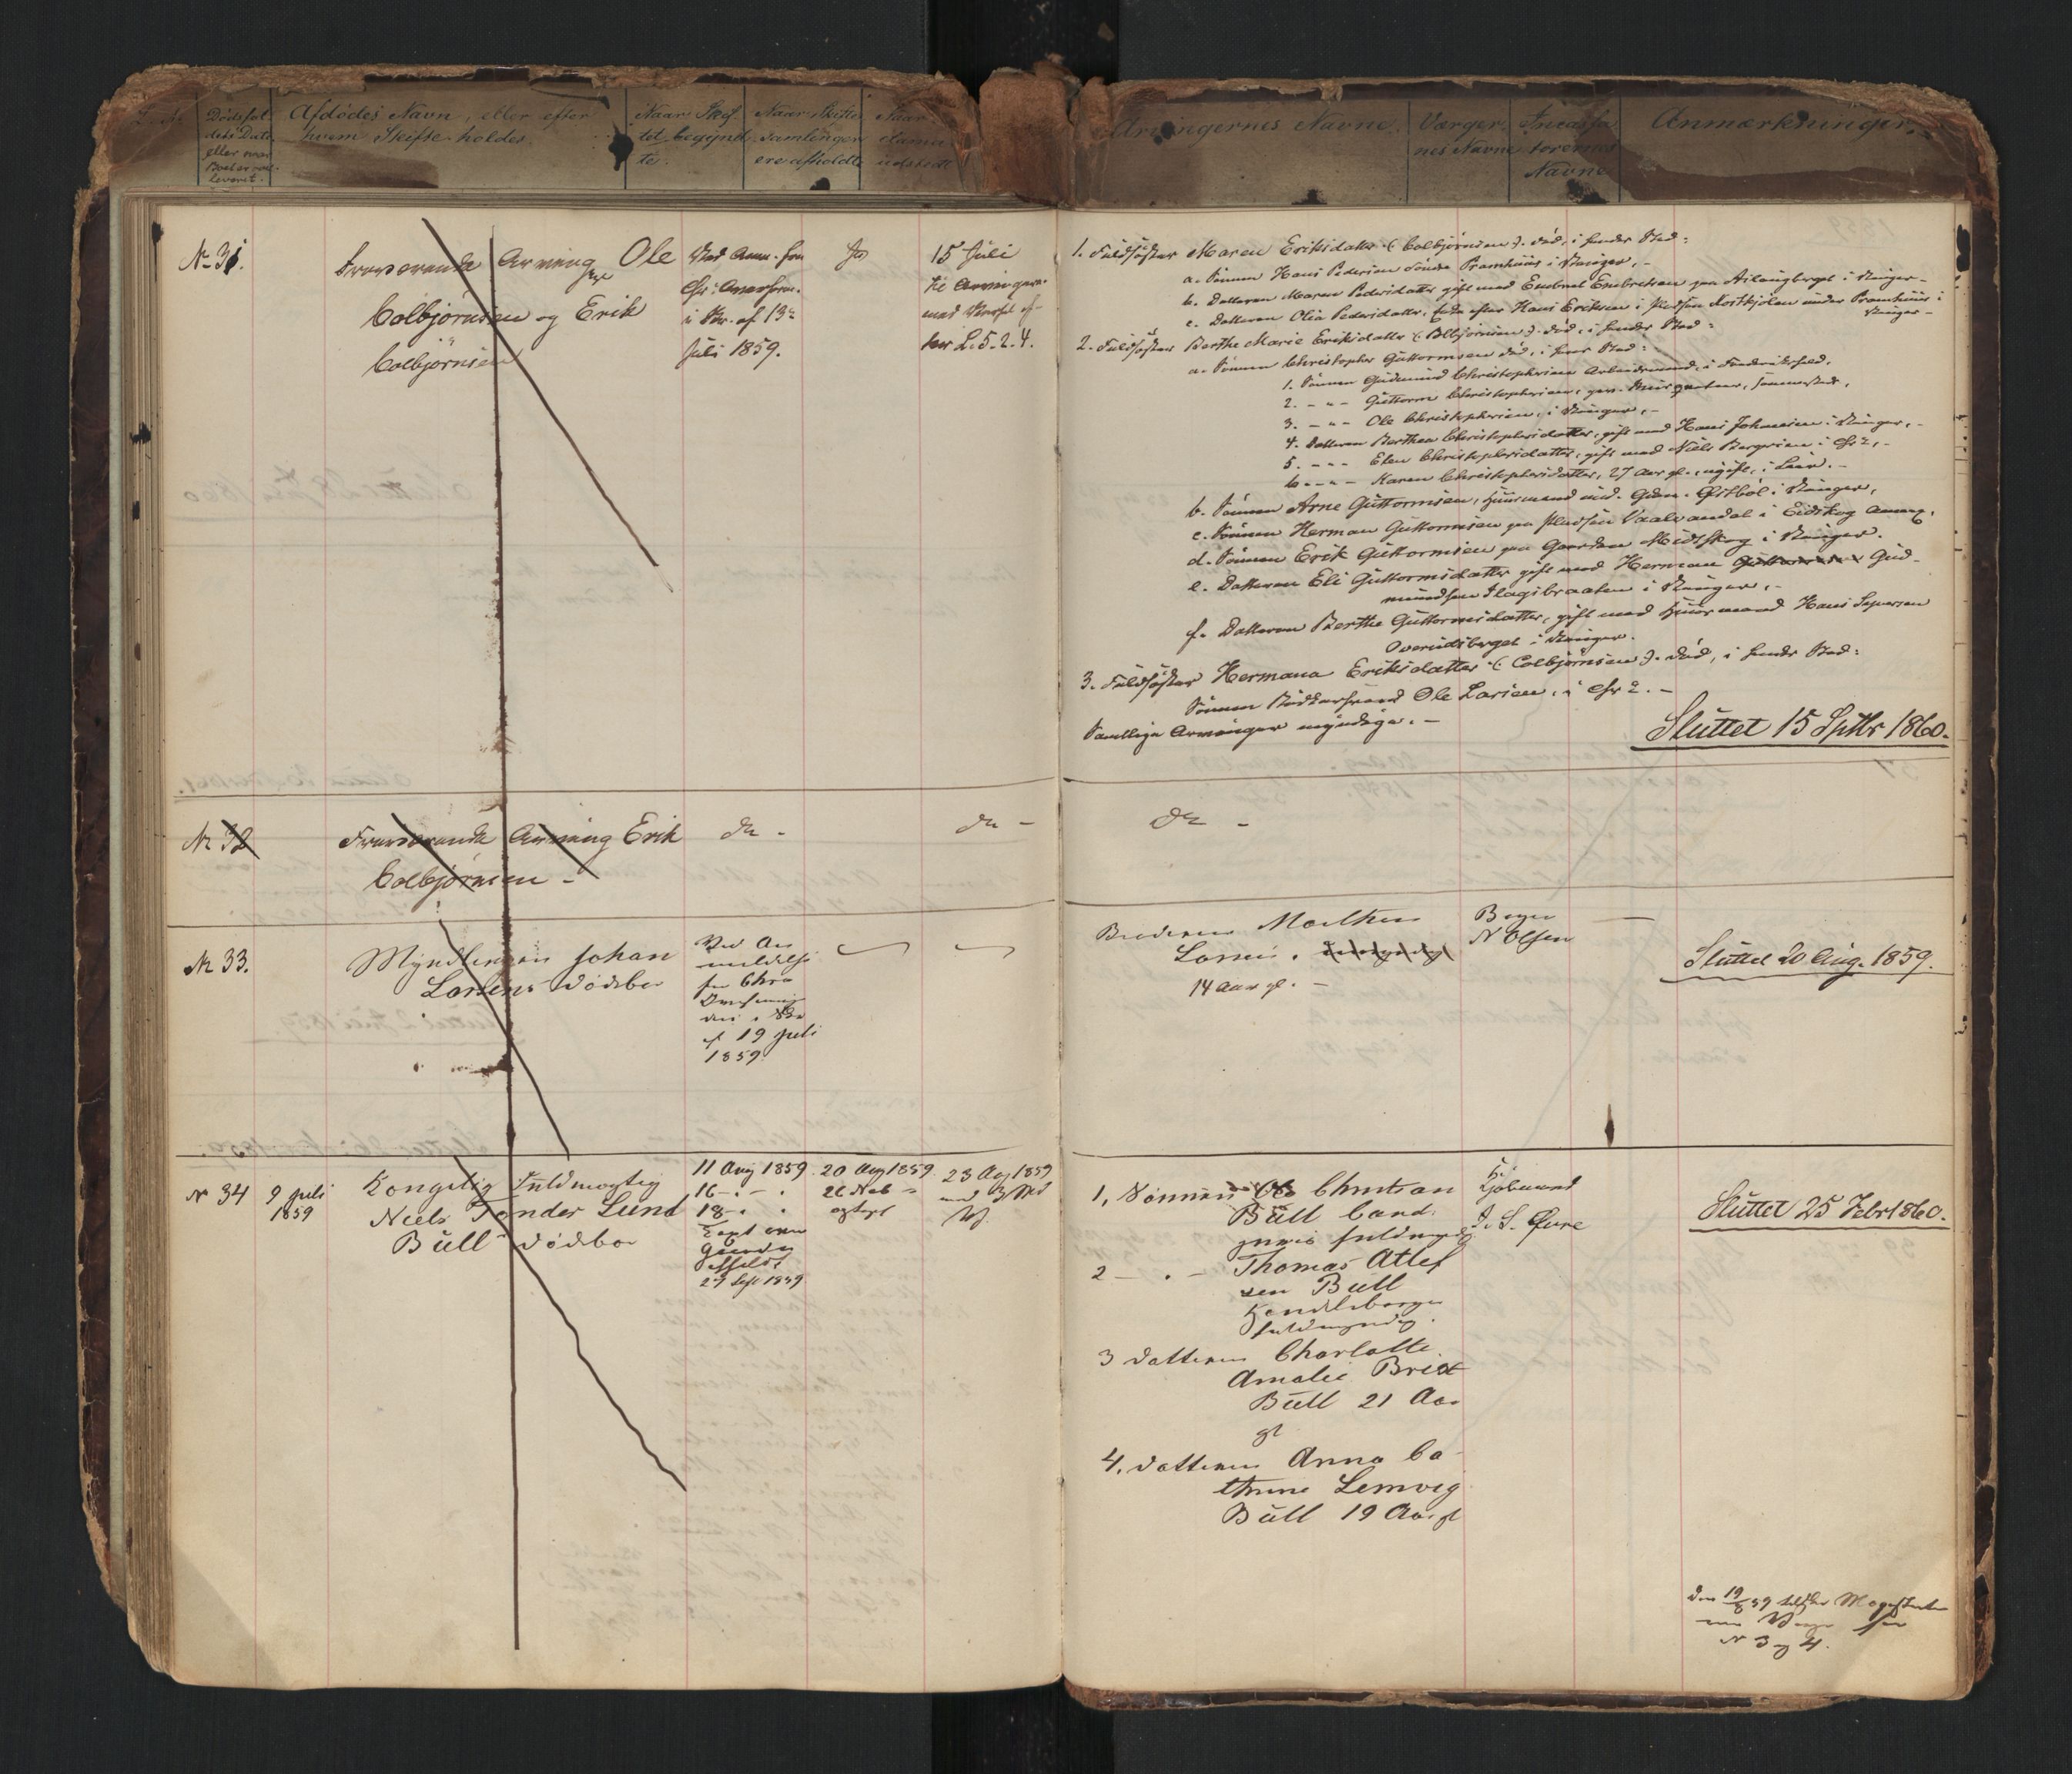 Dödsfal-
dets Dato
eller naar
Boet er ind-
leveret.
Afdödes Navn, eller efter
hvem Skifte holdes.
Naar Skif-
tet begynd-
te.
Naar Skifte-
samlingen
ere afholdte
Naar
udstedt
Arvingernes Navne.
Værger-
nes Navne
Incassa-
torernes
Navne
Anmærkninger.
No 31.
Fraværende Arving Ole
Colbjörnsen og Erik
Colbjörnsen
i Skr. af 13de
Juli 1859.
15 Juli
L. 5. 2. 4.
1. Fuldsøster Maren Eriksdatter (: Colbjörnsen :) död, i hendes Sted:
a. Sönnen Hans Pedersen Söndre Bramhuus i Vinger,
b. Datteren Maren Pedersdatter gift med Embret Embretsen paa Aslaugberget i Vinger
c. Datteren Olia Pedersdatter, Enke efter Hans Eriksen i Pladsen Kostkjölen under Bramhuus i
Vinger
2. Fuldsöster Berthe Marie Eriksdatter (: Colbjörnsen :) död, i hendes Sted:
a. Sönnen Christopher Guttormsen död, i hans Sted:
1. Sönnen Gudmund Christophersen Arbeidsmand, i Frederikshald,
2. - " - Guttorm Christophersen,
3. - " - Ole Christophersen, i Vinger,
4. Datteren Berthea Christophersdatter, gift med Hans Johnsen i Vinger,
5. - " - Elen Christophersdatter, gift med Niels Borgersen i Chr.a,
6. - " - Karen Christophersdatter, 27 Aar gl. ugift, i Lier.
b. Sönnen Arne Guttormsen, Huusmand und. Gden. Östböl i Vinger,
c. Sönnen Herman Guttormsen paa Pladsen Vaalvandet i Eidskog Annex,
d. Sönnen Erik Guttormsen paa Gaarden Midtskog i Vinger.
e. Datteren Eli Guttormsdatter gift med Herman Guttormsen Gud-
mundsen Flagsbraaten i Vinger,
f. Datteren Berthe Guttormsdatter, gift med Huusmand Hans Jespersen
Overudsberget i Vinger.
3. Fuldsöster Hermana Eriksdatter (: Colbjörnsen :) död, i hendes Sted:
Sönnen Bödkersvend Ole Larsen, i Chr.a. -
Samtlige Arvinger myndige. -
Sluttet 15 Septbr 1860.
No 32
Fraværende Arving Erik
Colbjörnsen -
do -
do -
do -
No 33.
Myndlingen Johan
Larsens Dödsbo
Ved An
meldelse
fra Chra
i Skr
af 19 Juli
1859
Broderen Mathias
Larsen. umyndig
14 Aar gl. -
Bager
N Olsen
Sluttet 20 Aug. 1859.
No 34
9 Juli
1859
Kongelig Fuldmægtig
Niels Tönder Lund
Bull Dödsbo
11 Aug 1859.
16 - " -
18 - "
27 Sept 1859
20 Aug 1859.
23 Aug 1859
1, Sönnen Ole Christian
Bull Cand.
juris fuldmyndig
2 - " - Thomas Atlef
sen Bull
Handelsborger
fuldmyndig.
3 Datteren Charlotte
Amalie Brix
Bull 21 Aar
gl
4. Datteren Anna Ca-
thrine Lemvig
Bull 19 Aar gl
Kjöbmand
J. S. Qvre
Sluttet 25 Febr 1860.
Den 19/8 59 Magistraten
om Værge for
No 3 og 4.